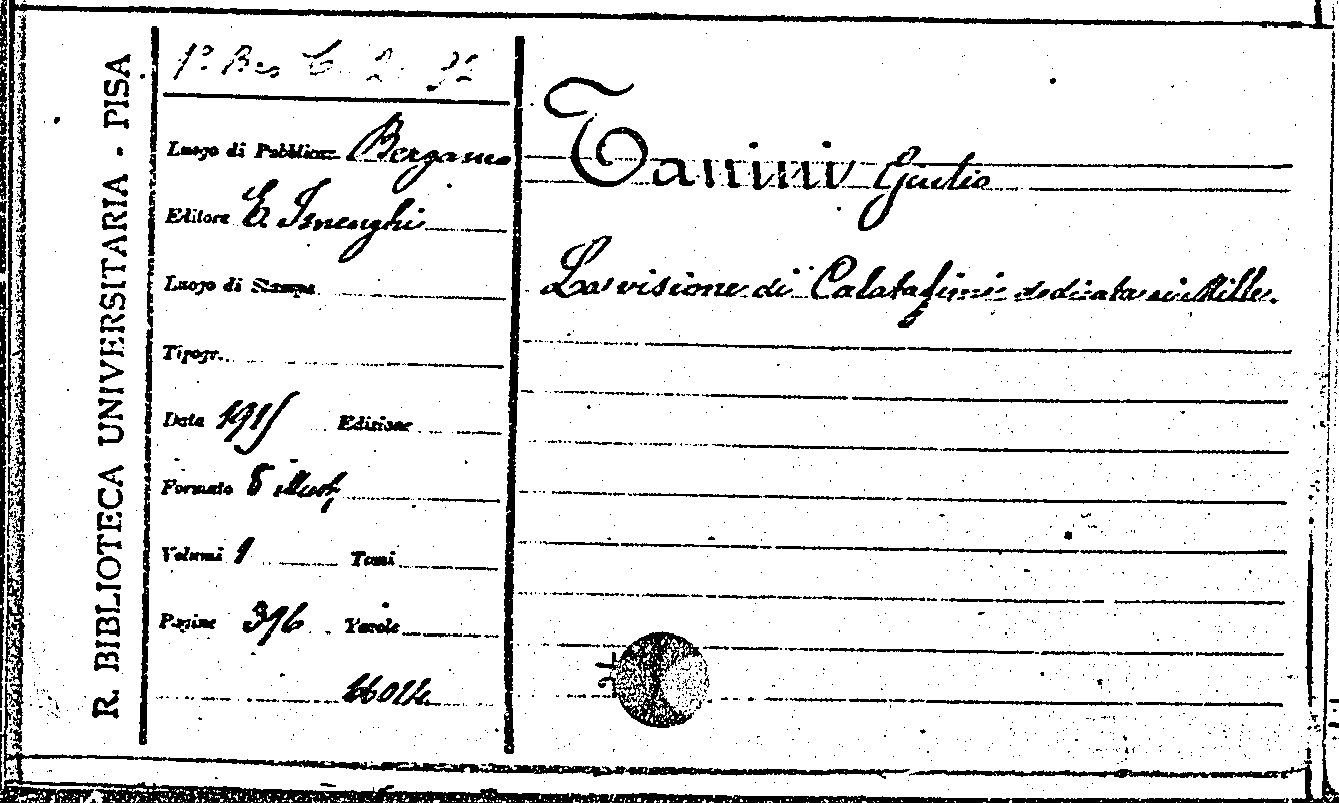 R. BIBLIOTECA UNIVERSITARIA - PISA
1º Bis C. 2. 92
Luogo di Pubblicaz. Bergamo
Editore E. Isnenghi
Luogo di Stampa
Tipogr.
Data 1915 Edizione
Formato 8 illust.
Volumi 1 Tomi
Pagine 396 Tavole
Tanini Giulio
La visione di Calatafimi dedicata ai Mille.